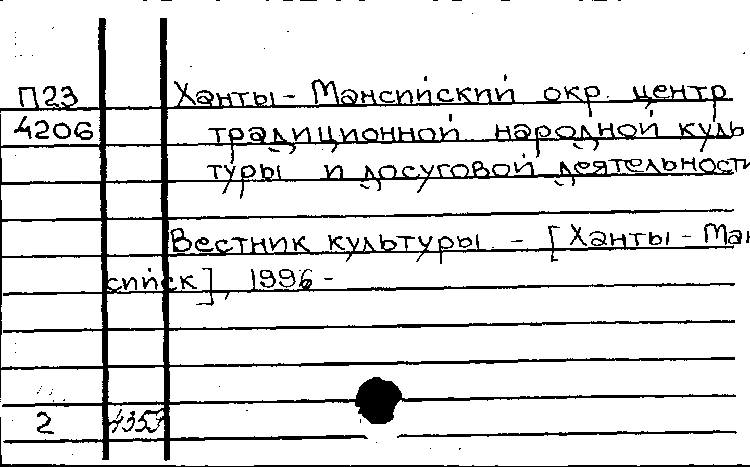 П23 Ханты-Мансийский окр. центр
4206 традиционной народной куль
туры и досуговой деятельности
Вестник культуры. - [Ханты-Ман
сийск], 1996-
2 4353